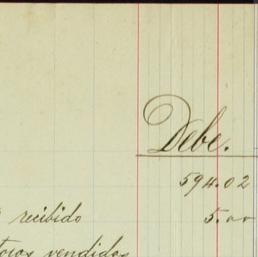 Debe.
594.02
recibido 5.00
vendidos